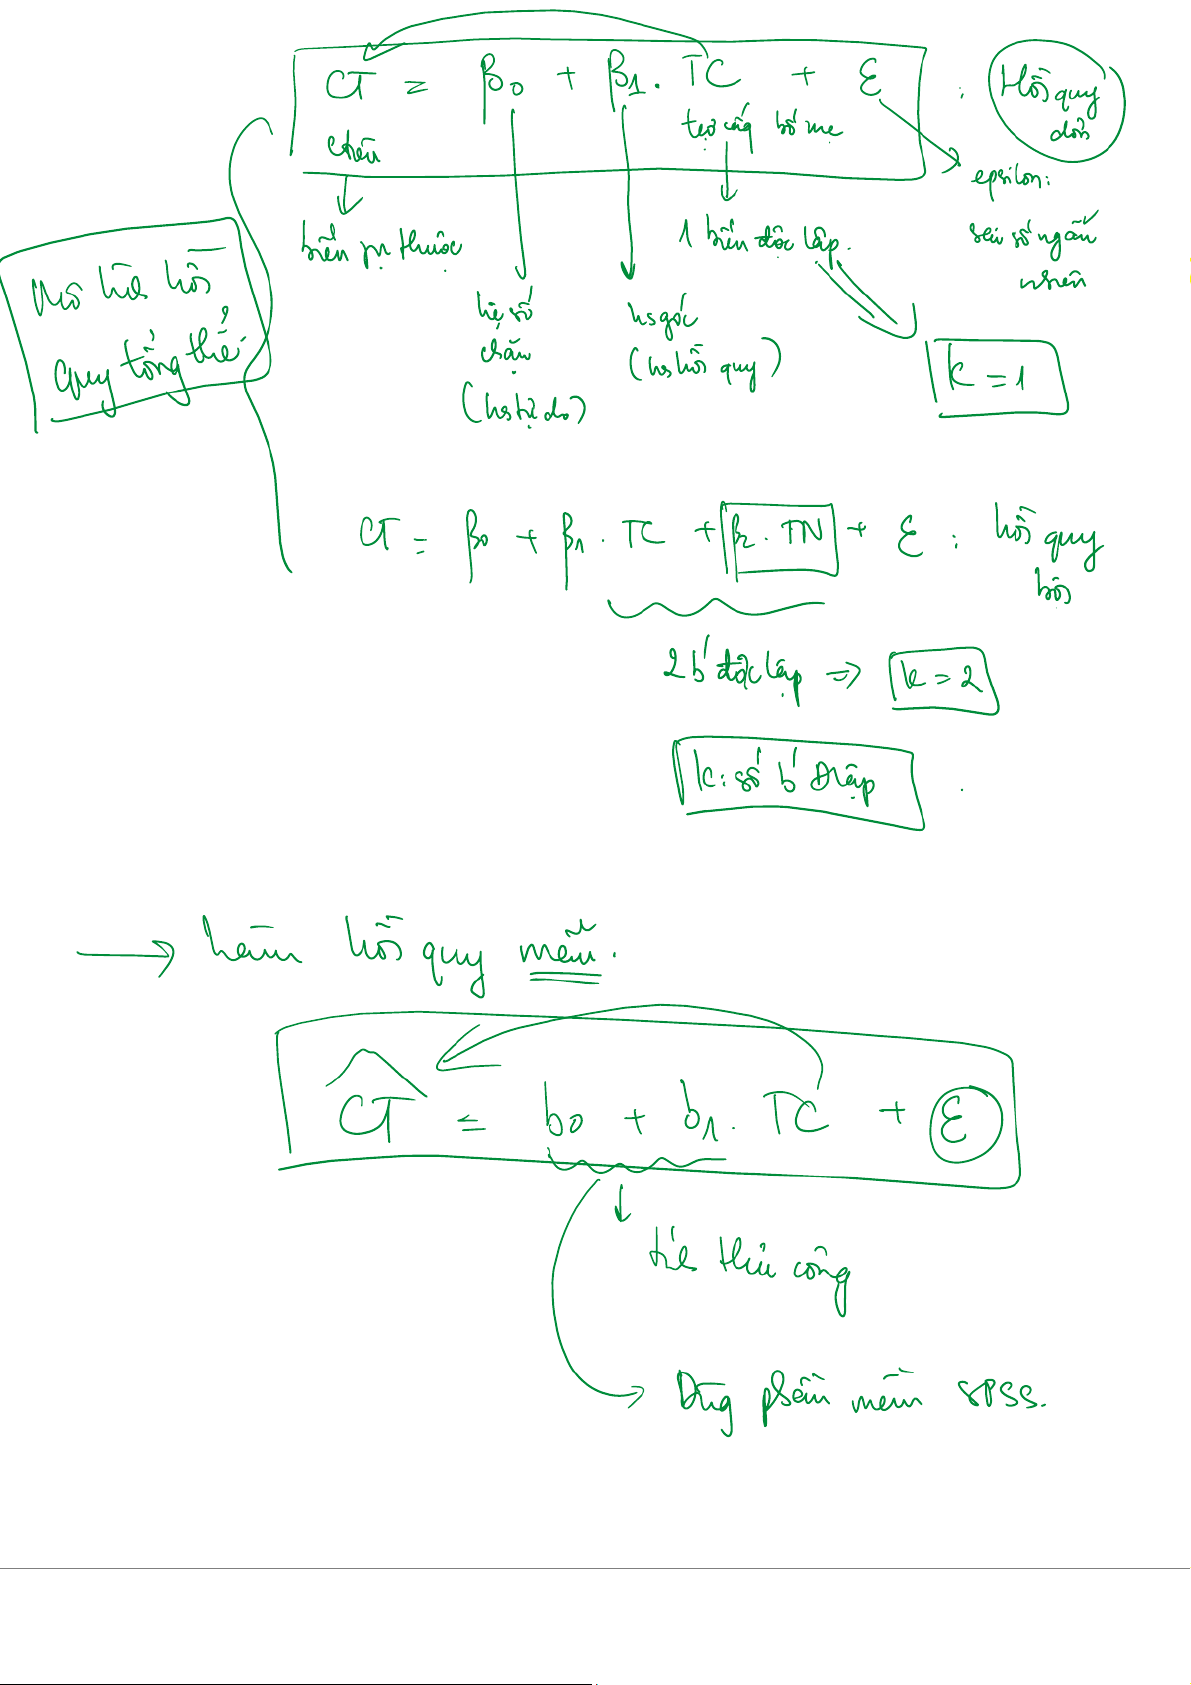 CT = β0 + β1. TC + ε : Hồi quy
đơn
chi tiêu
trợ cấp bố mẹ
epsilon:
sai số ngẫu
nhiên
biến phụ thuộc
1 biến độc lập.
Mô hình hồi
quy tổng thể.
hệ số
chặn
(hs tự do)
hs góc
(hs hồi quy)
k = 1
CT = β0 + β1 . TC + β2 . TN + ε : hồi quy
bội
2 b' độc lập => k = 2
k: số b' Đlập
→ hàm hồi quy mẫu.
CT = b0 + b1. TC + ε
tính thủ công
Dùng phần mềm SPSS.